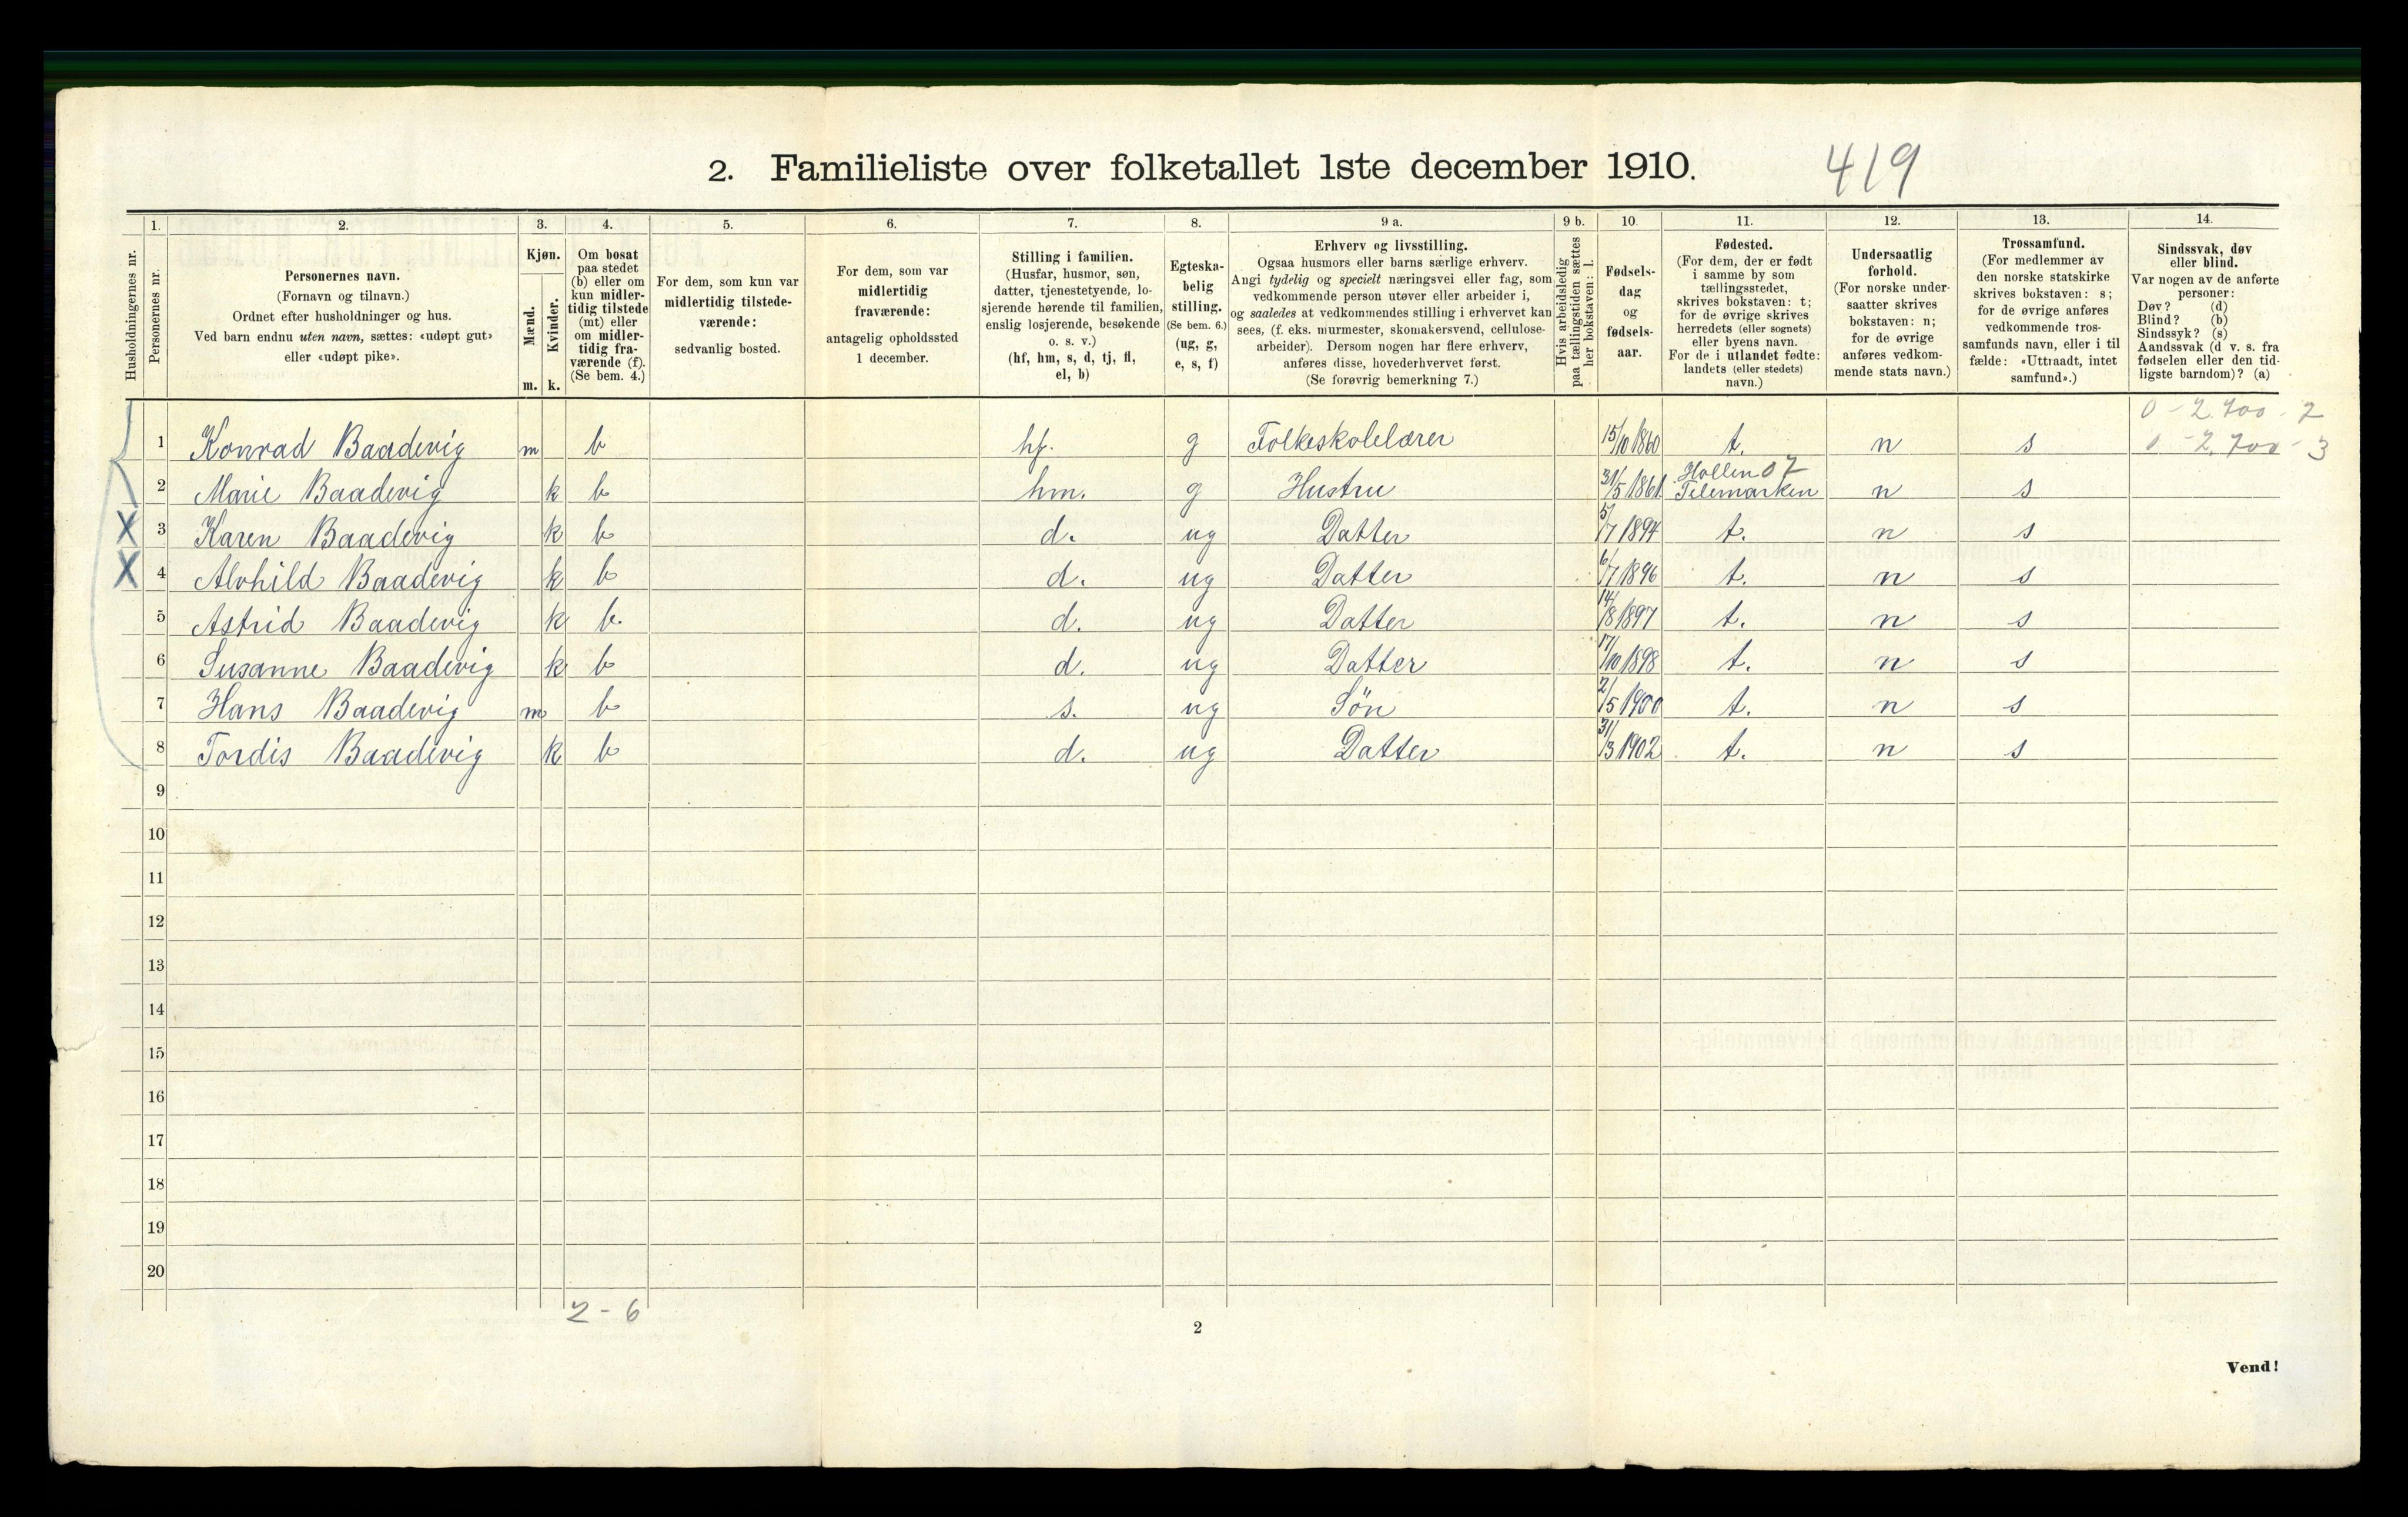 2. Familieliste over folketallet 1ste december 1910. 419
Husholdningernes nr.
1.
Personernes nr.
2.
Personernes navn.
(Fornavn og tilnavn.)
Ordnet efter husholdninger og hus.
Ved barn endnu uten navn, sættes: «udøpt gut»
eller «udøpt pike».
3.
Kjøn.
Mænd.
Kvinder.
m. k.
4.
Om bosat
paa stedet
(b) eller om
kun midler-
tidig tilstede
(mt) eller
om midler-
tidig fra-
værende (f).
(Se bem. 4.)
5.
For dem, som kun var
midlertidig tilstede-
værende:
sedvanlig bosted.
6.
For dem, som var
midlertidig
fraværende:
antagelig opholdssted
1 december.
7.
Stilling i familien.
(Husfar, husmor, søn,
datter, tjenestetyende, lo-
sjerende hørende til familien,
enslig losjerende, besøkende
o. s. v.)
(hf, hm, s, d, tj, fl,
el, b)
8.
Egteska-
belig
stilling.
(Se bem. 6.)
(ug, g,
e, s, f)
9 a.
Erhverv og livsstilling.
Ogsaa husmors eller barns særlige erhverv.
Angi tydelig og specielt næringsvei eller fag, som
vedkommende person utøver eller arbeider i,
og saaledes at vedkommendes stilling i erhvervet kan
sees, (f. eks. murmester, skomakersvend, cellulose-
arbeider). Dersom nogen har flere erhverv,
anføres disse, hovederhvervet først.
(Se forøvrig bemerkning 7.)
9 b.
Hvis arbeidsledig
paa tællingstiden sættes
her bokstaven: l.
10.
Fødsels-
dag
og
fødsels-
aar.
11.
Fødested.
(For dem, der er født
i samme by som
tællingsstedet,
skrives bokstaven: t;
for de øvrige skrives
herredets (eller sognets)
eller byens navn.
For de i utlandet fødte:
landets (eller stedets)
navn.)
12.
Undersaatlig
forhold.
(For norske under-
saatter skrives
bokstaven: n;
for de øvrige
anføres vedkom-
mende stats navn.)
13.
Trossamfund.
(For medlemmer av
den norske statskirke
skrives bokstaven: s;
for de øvrige anføres
vedkommende tros-
samfunds navn, eller i til
fælde: «Uttraadt, intet
samfund».)
14.
Sindssvak, døv
eller blind.
Var nogen av de anførte
personer:
Døv? (d)
Blind? (b)
Sindssyk? (s)
Aandssvak (d v. s. fra
fødselen eller den tid-
ligste barndom)? (a)
0 - 2.700 - 2
1 Konrad Baadevig m b hf. g Folkeskolelærer 15/10 1860 t. n s 0 - 2.700 - 3
Hollen 07
2 Marie Baadevig k b hm. g Hustru 31/5 1861 Telemarken n s
X 3 Karen Baadevig k b d. ug Datter 5/7 1894 t. n s
X 4 Alvhild Baadevig k b d. ug Datter 6/7 1896 t. n s
5 Astrid Baadevig k b. d. ug Datter 14/8 1897 t. n s
6 Susanne Baadevig k b d. ug Datter 17/10 1898 t. n s
7 Hans Baadevig m b s. ug Sön 2/5 1900 t. n s
8 Tordis Baadevig k b d. ug Datter 31/3 1902 t. n s
9
10
11
12
13
14
15
16
17
18
19
20
2 - 6
2
Vend!